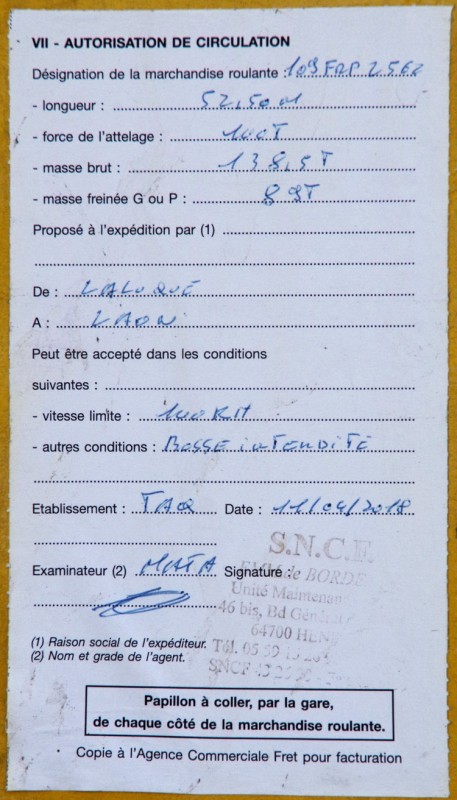 VII - AUTORISATION DE CIRCULATION
Désignation de la marchandise roulante : 109 FRP 2562
- longueur : 52,50 M
- force de l'attelage : 100T
- masse brut : 138,5T
- masse freinée G ou P : 89T
Proposé à l'expédition par (1)
De : LALUQUE
A : LAON
Peut être accepté dans les conditions
suivantes :
- vitesse limite : 100 KH
- autres conditions : BOSSE iNTERDITE
Etablissement : TAQ Date : 11/04/2018
S.N.C.F.
de BORDE
Examinateur (2) MATA Signature :
Unité Maintenan
46 bis, Bd Général
64700 HEN
(1) Raison social de l'expéditeur.
Tél. 05 59
(2) Nom et grade de l'agent.
SNCF
Papillon à coller, par la gare,
de chaque côté de la marchandise roulante.
Copie à l'Agence Commerciale Fret pour facturation